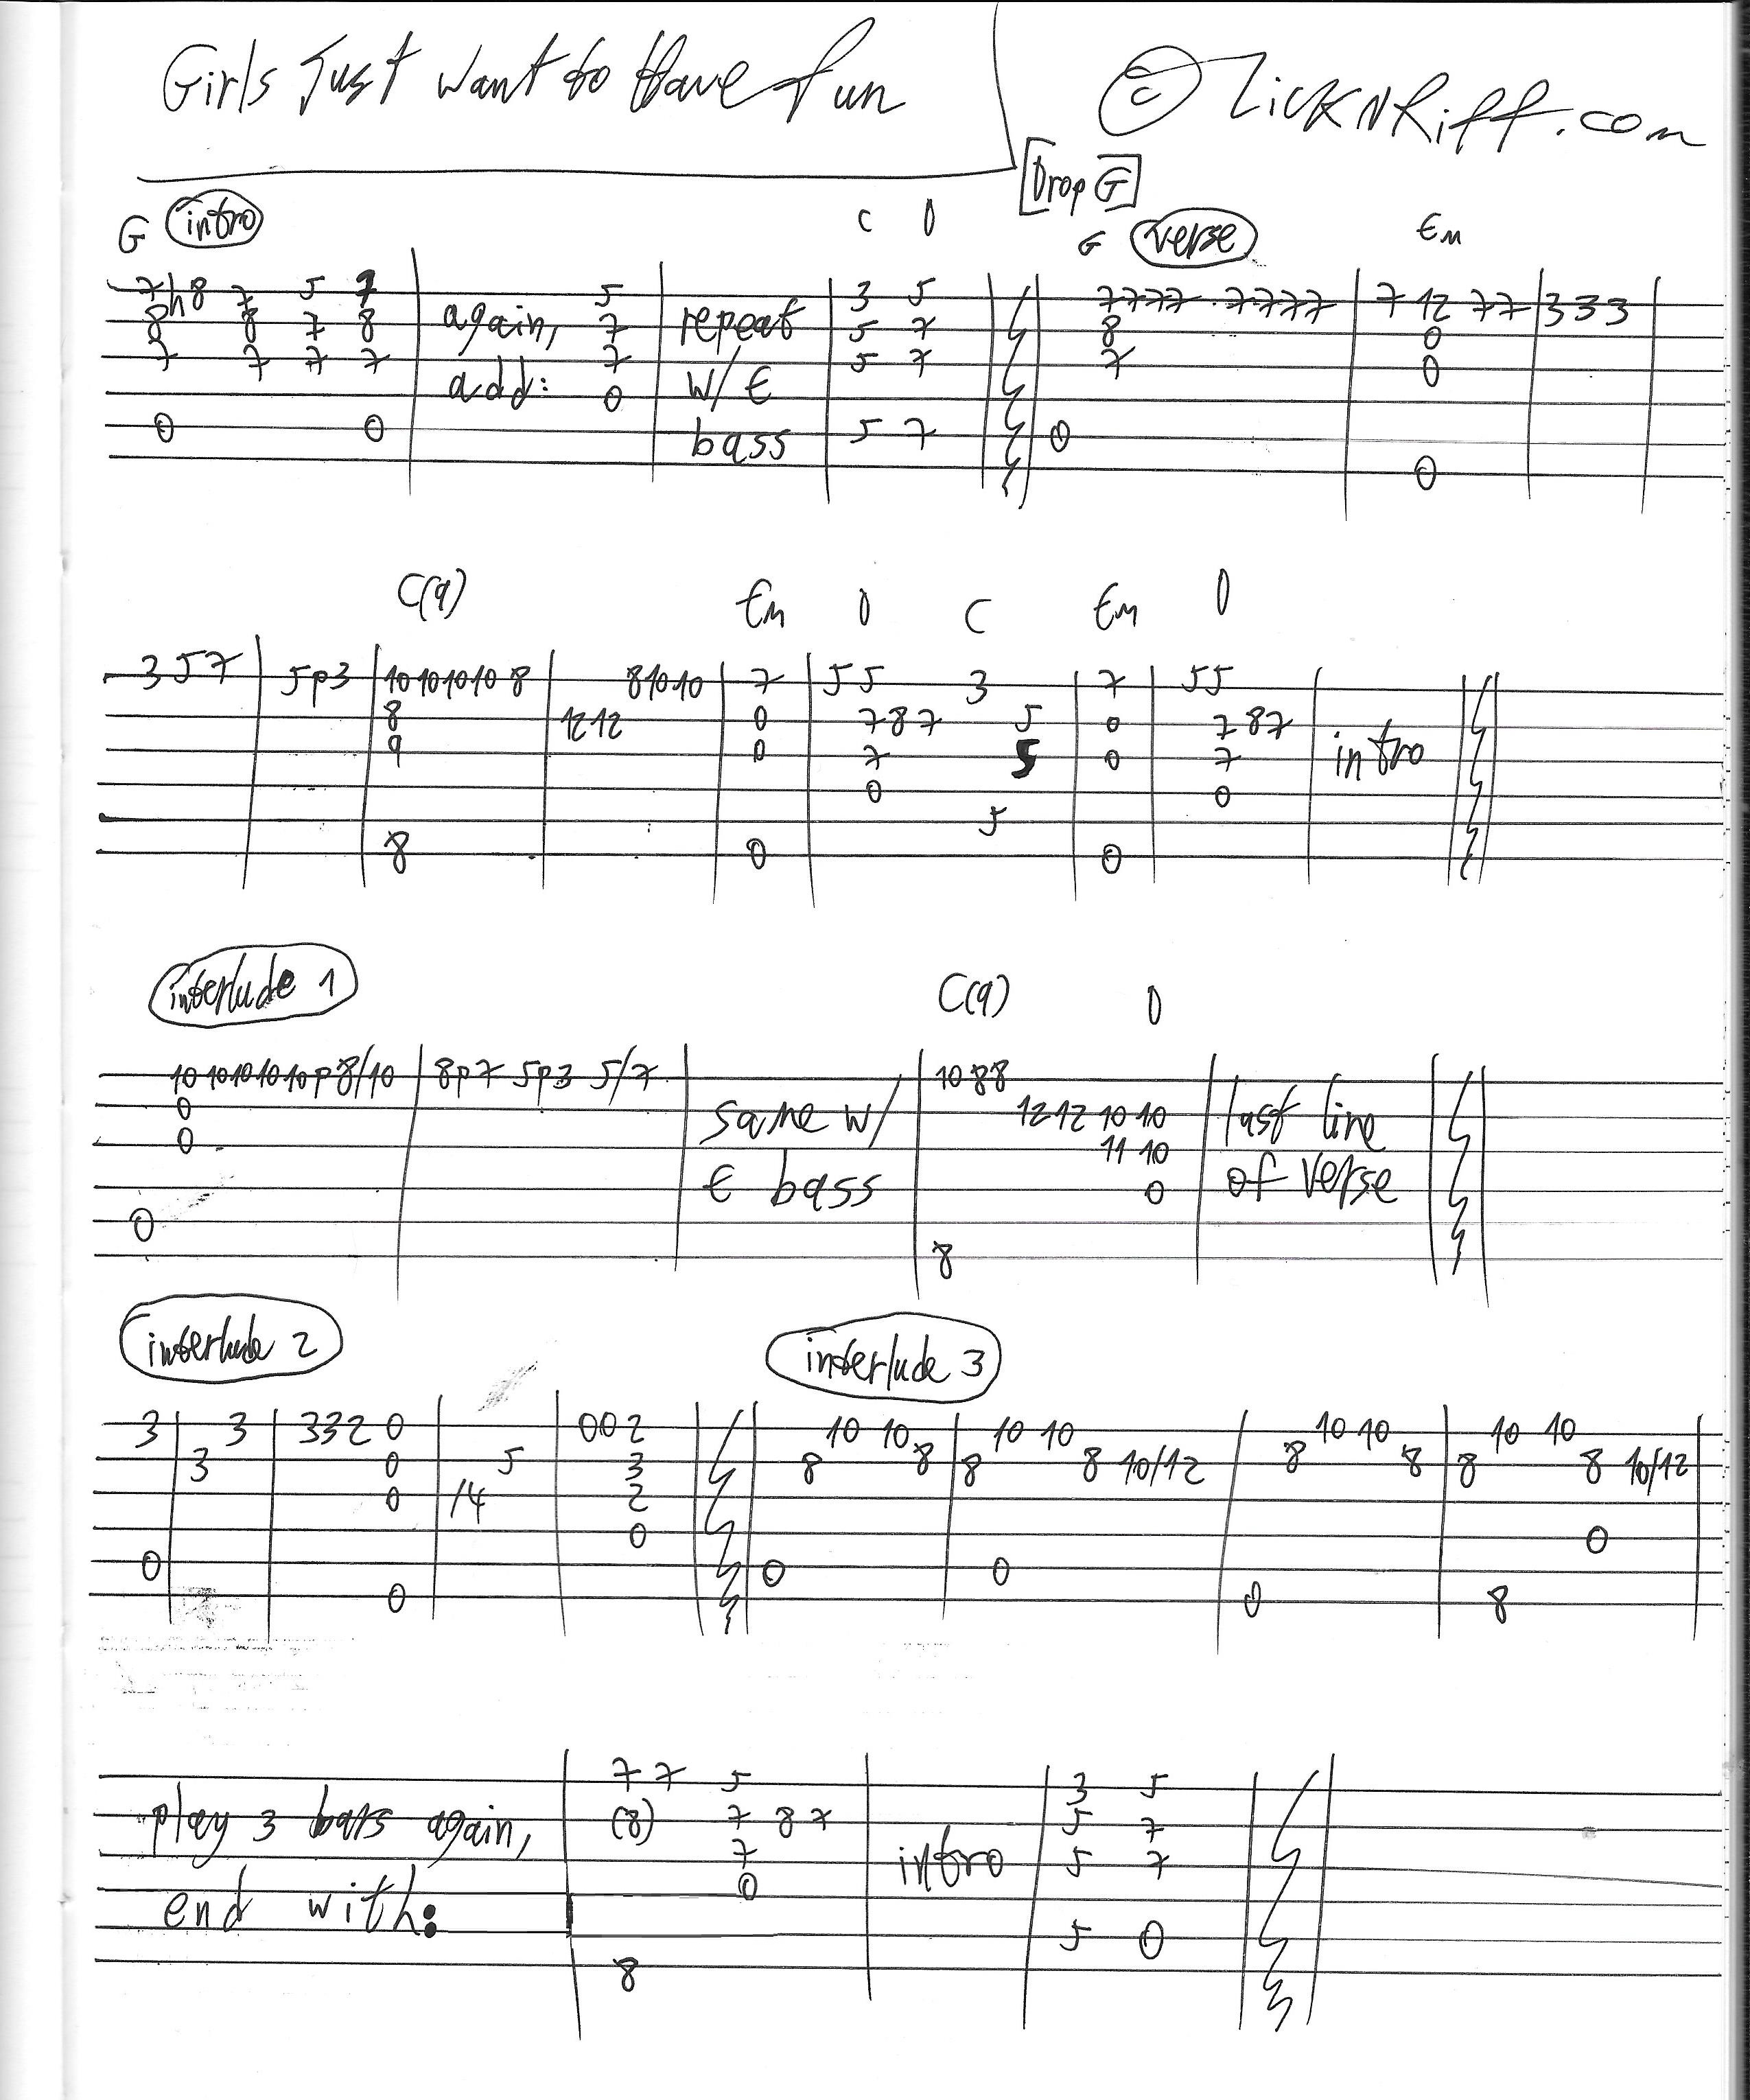 Girls Just Want to Have Fun
© LickNRiff.com
[Drop G]
G intro C D G verse Em
7h8 7 5 7 5 3 5 7777 7777 7 12 77 333
8 8 7 8 again, 7 repeat 5 7 8 0
7 7 7 7 7 5 7 7 0
add: 0 w/ E
0 0 bass 5 7 0
0
C(9) Em D C Em D
3 5 7 5p3 10 10 10 10 8 8 10 10 7 5 5 3 7 5 5
8 12 12 0 7 8 7 5 0 7 8 7
9 0 7 5 0 7 intro
0 0
5
8 0 0
interlude 1 C(9) D
10 10 10 10 10p8/10 8p7 5p3 5/7 10 8 8
0 same w/ 12 12 10 10 last line
0 11 10
E bass 0 of verse
0
8
interlude 2 interlude 3
3 3 3 3 2 0 0 0 2 10 10 10 10 10 10 10 10
3 0 5 3 8 8 8 8 10/12 8 8 8 8 10/12
0 /4 2
0 0
0 0 0
0 0 8
7 7 5 3 5
play 3 bars again, (8) 7 8 7 5 7
7 intro 5 7
end with: 0
5 0
8